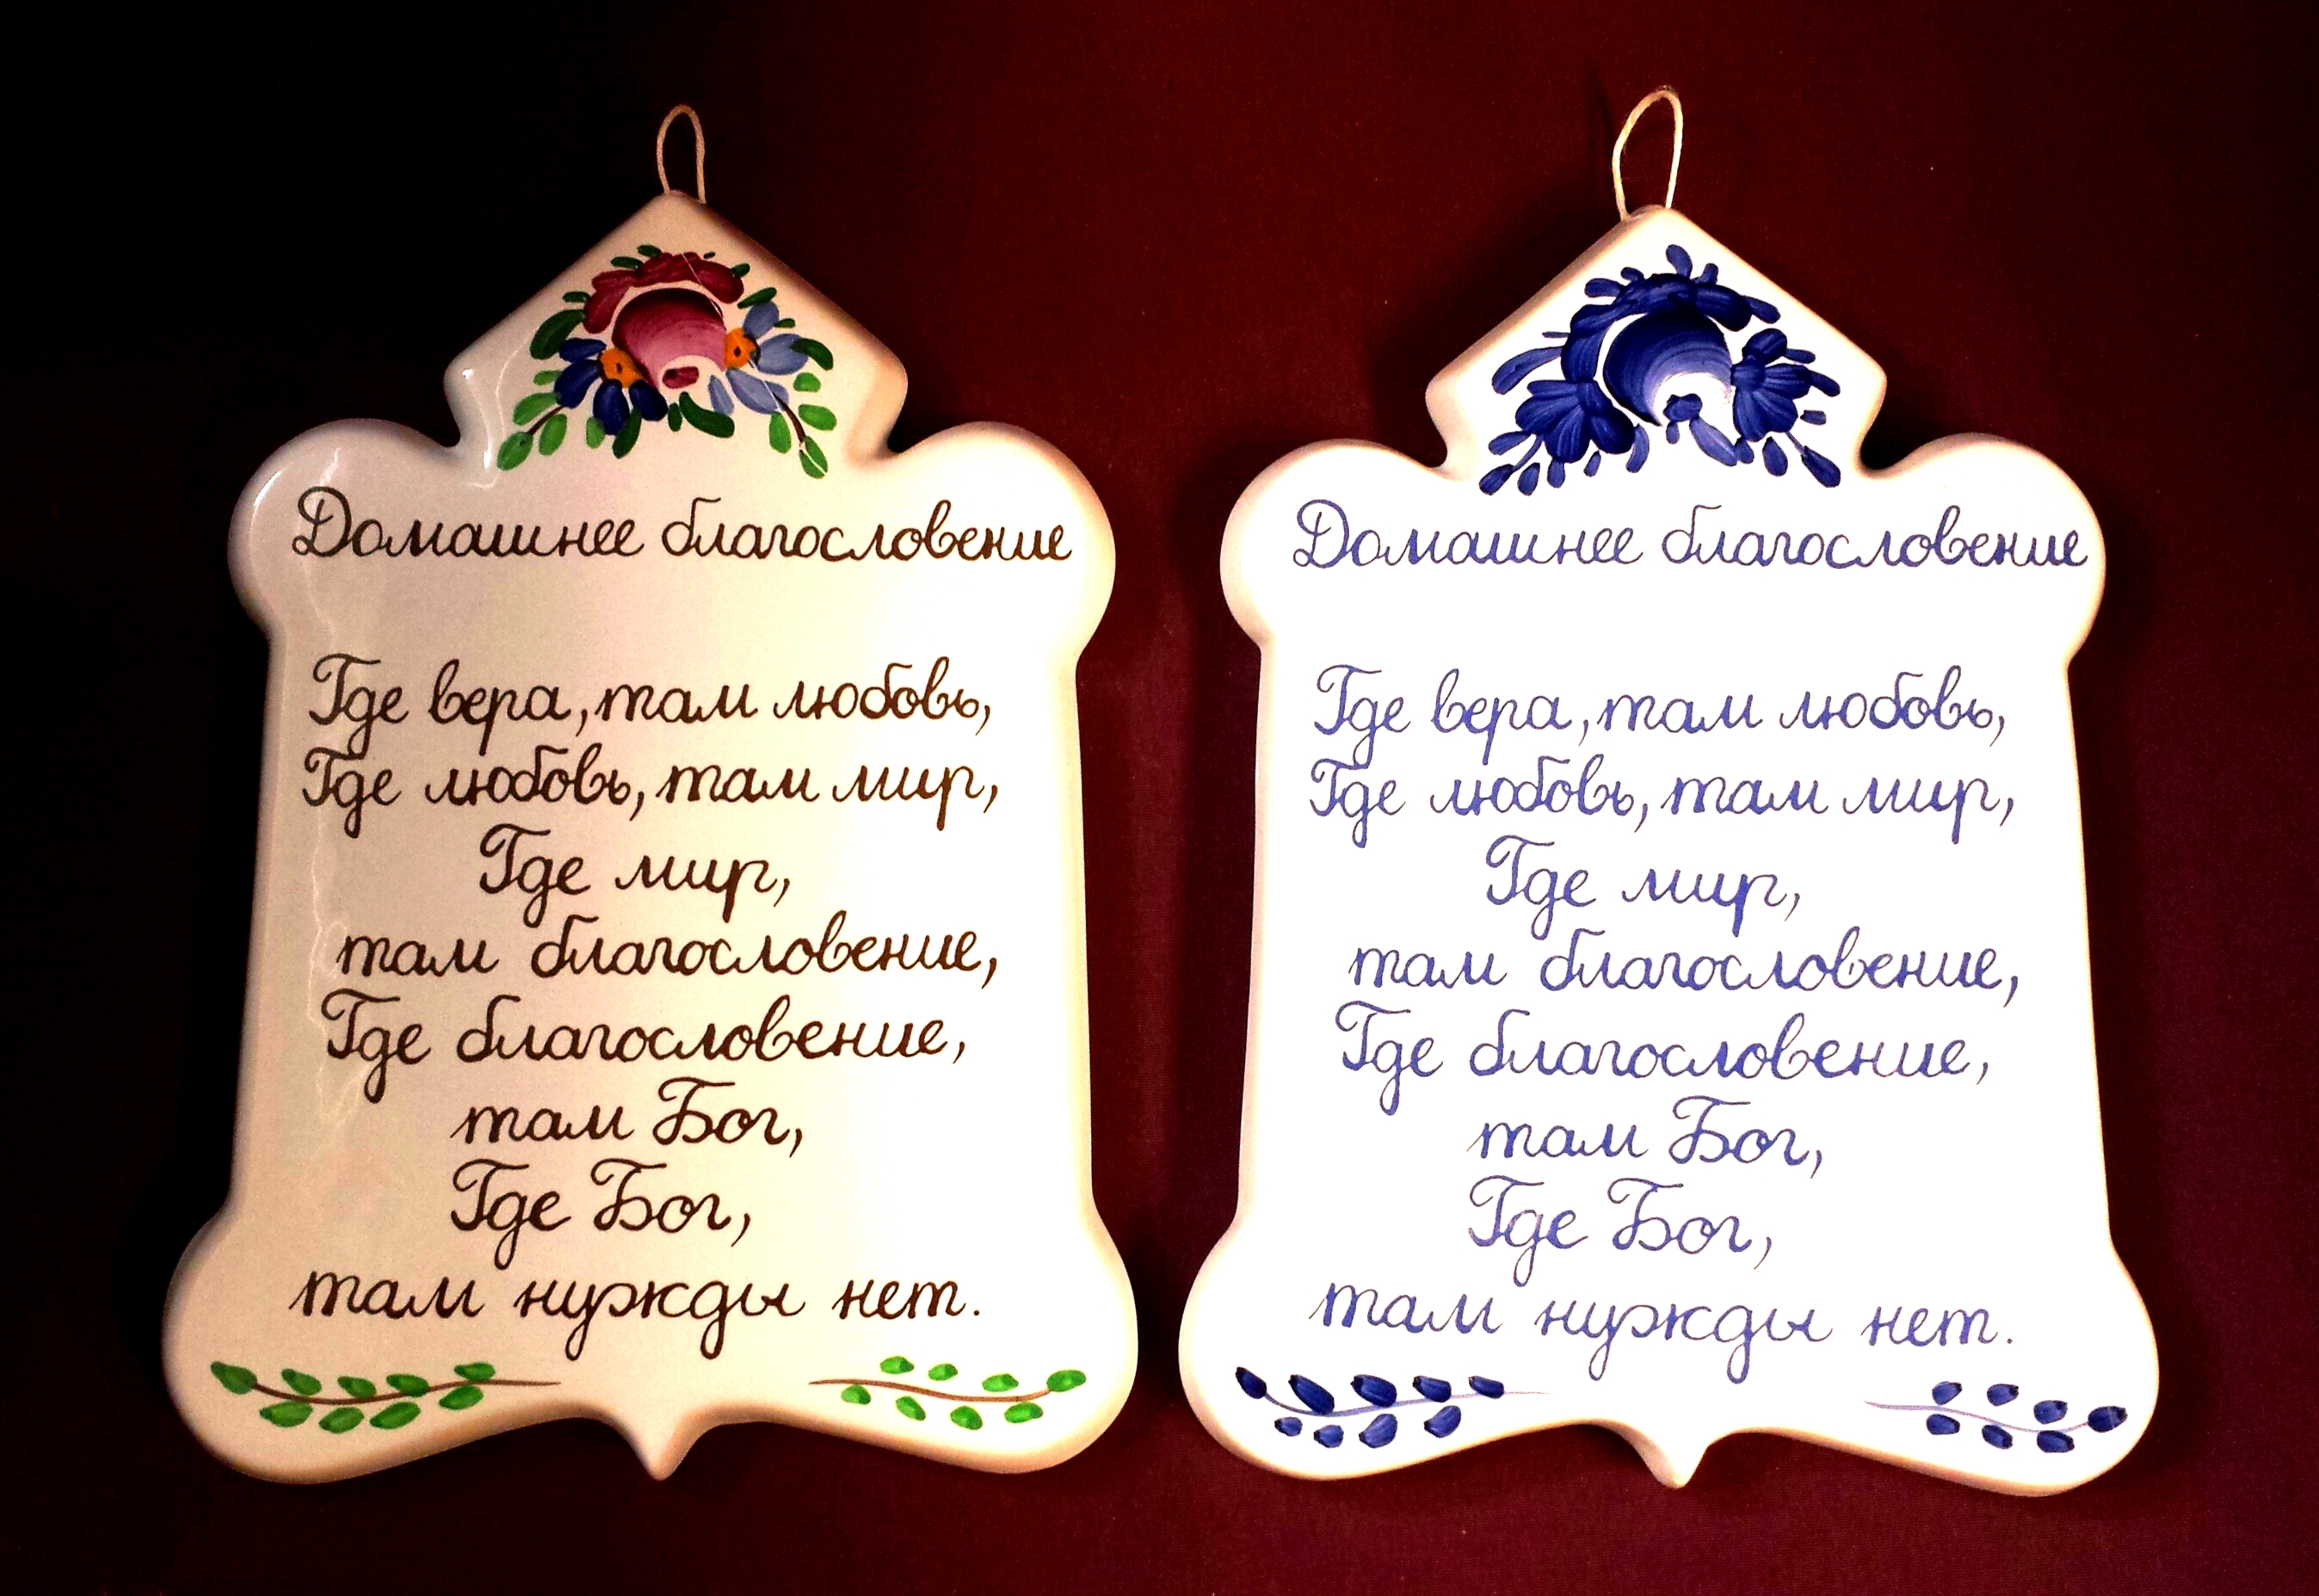 Домашнее благословение
Где вера, там любовь,
Где любовь, там мир,
Где мир,
там благословение,
Где благословение,
там Бог,
Где Бог,
там нужды нет.
Домашнее благословение
Где вера, там любовь,
Где любовь, там мир,
Где мир,
там благословение,
Где благословение,
там Бог,
Где Бог,
там нужды нет.